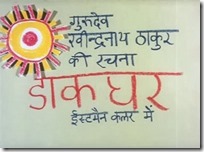 गुरुदेव
रवीन्द्रनाथ ठाकुर
की रचना
डाक घर
ईस्टमैन कलर में